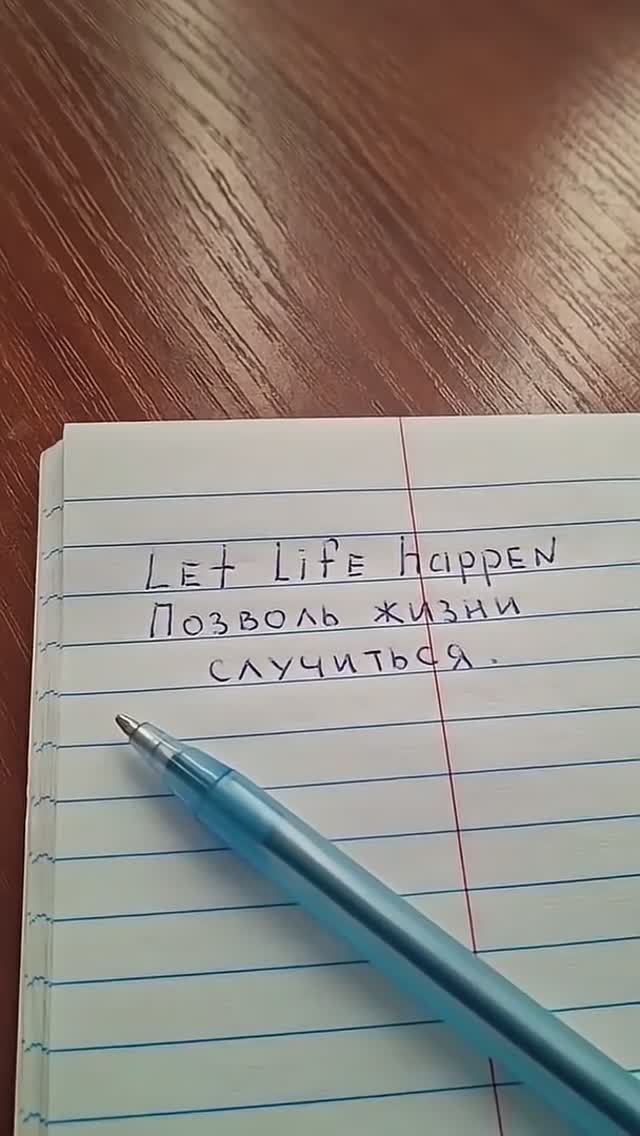 Let Life happen
Позволь жизни
случиться.